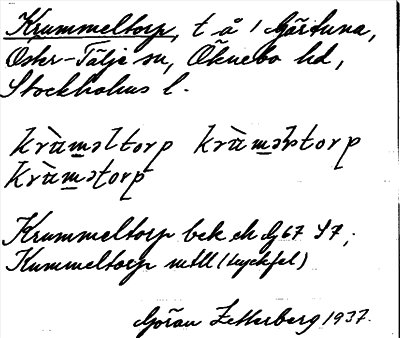 Krummeltorp, t å 1 Gärtuna,
Öster-Tälje sn, Öknebo hd,
Stockholms l.
krùməltorp krùməɬtorp
krùməʈorp
Krummeltorp bek ek Gj 67 S 7;
Kummeltorp mtll (tryckfel)
Göran Zetterberg 1937.